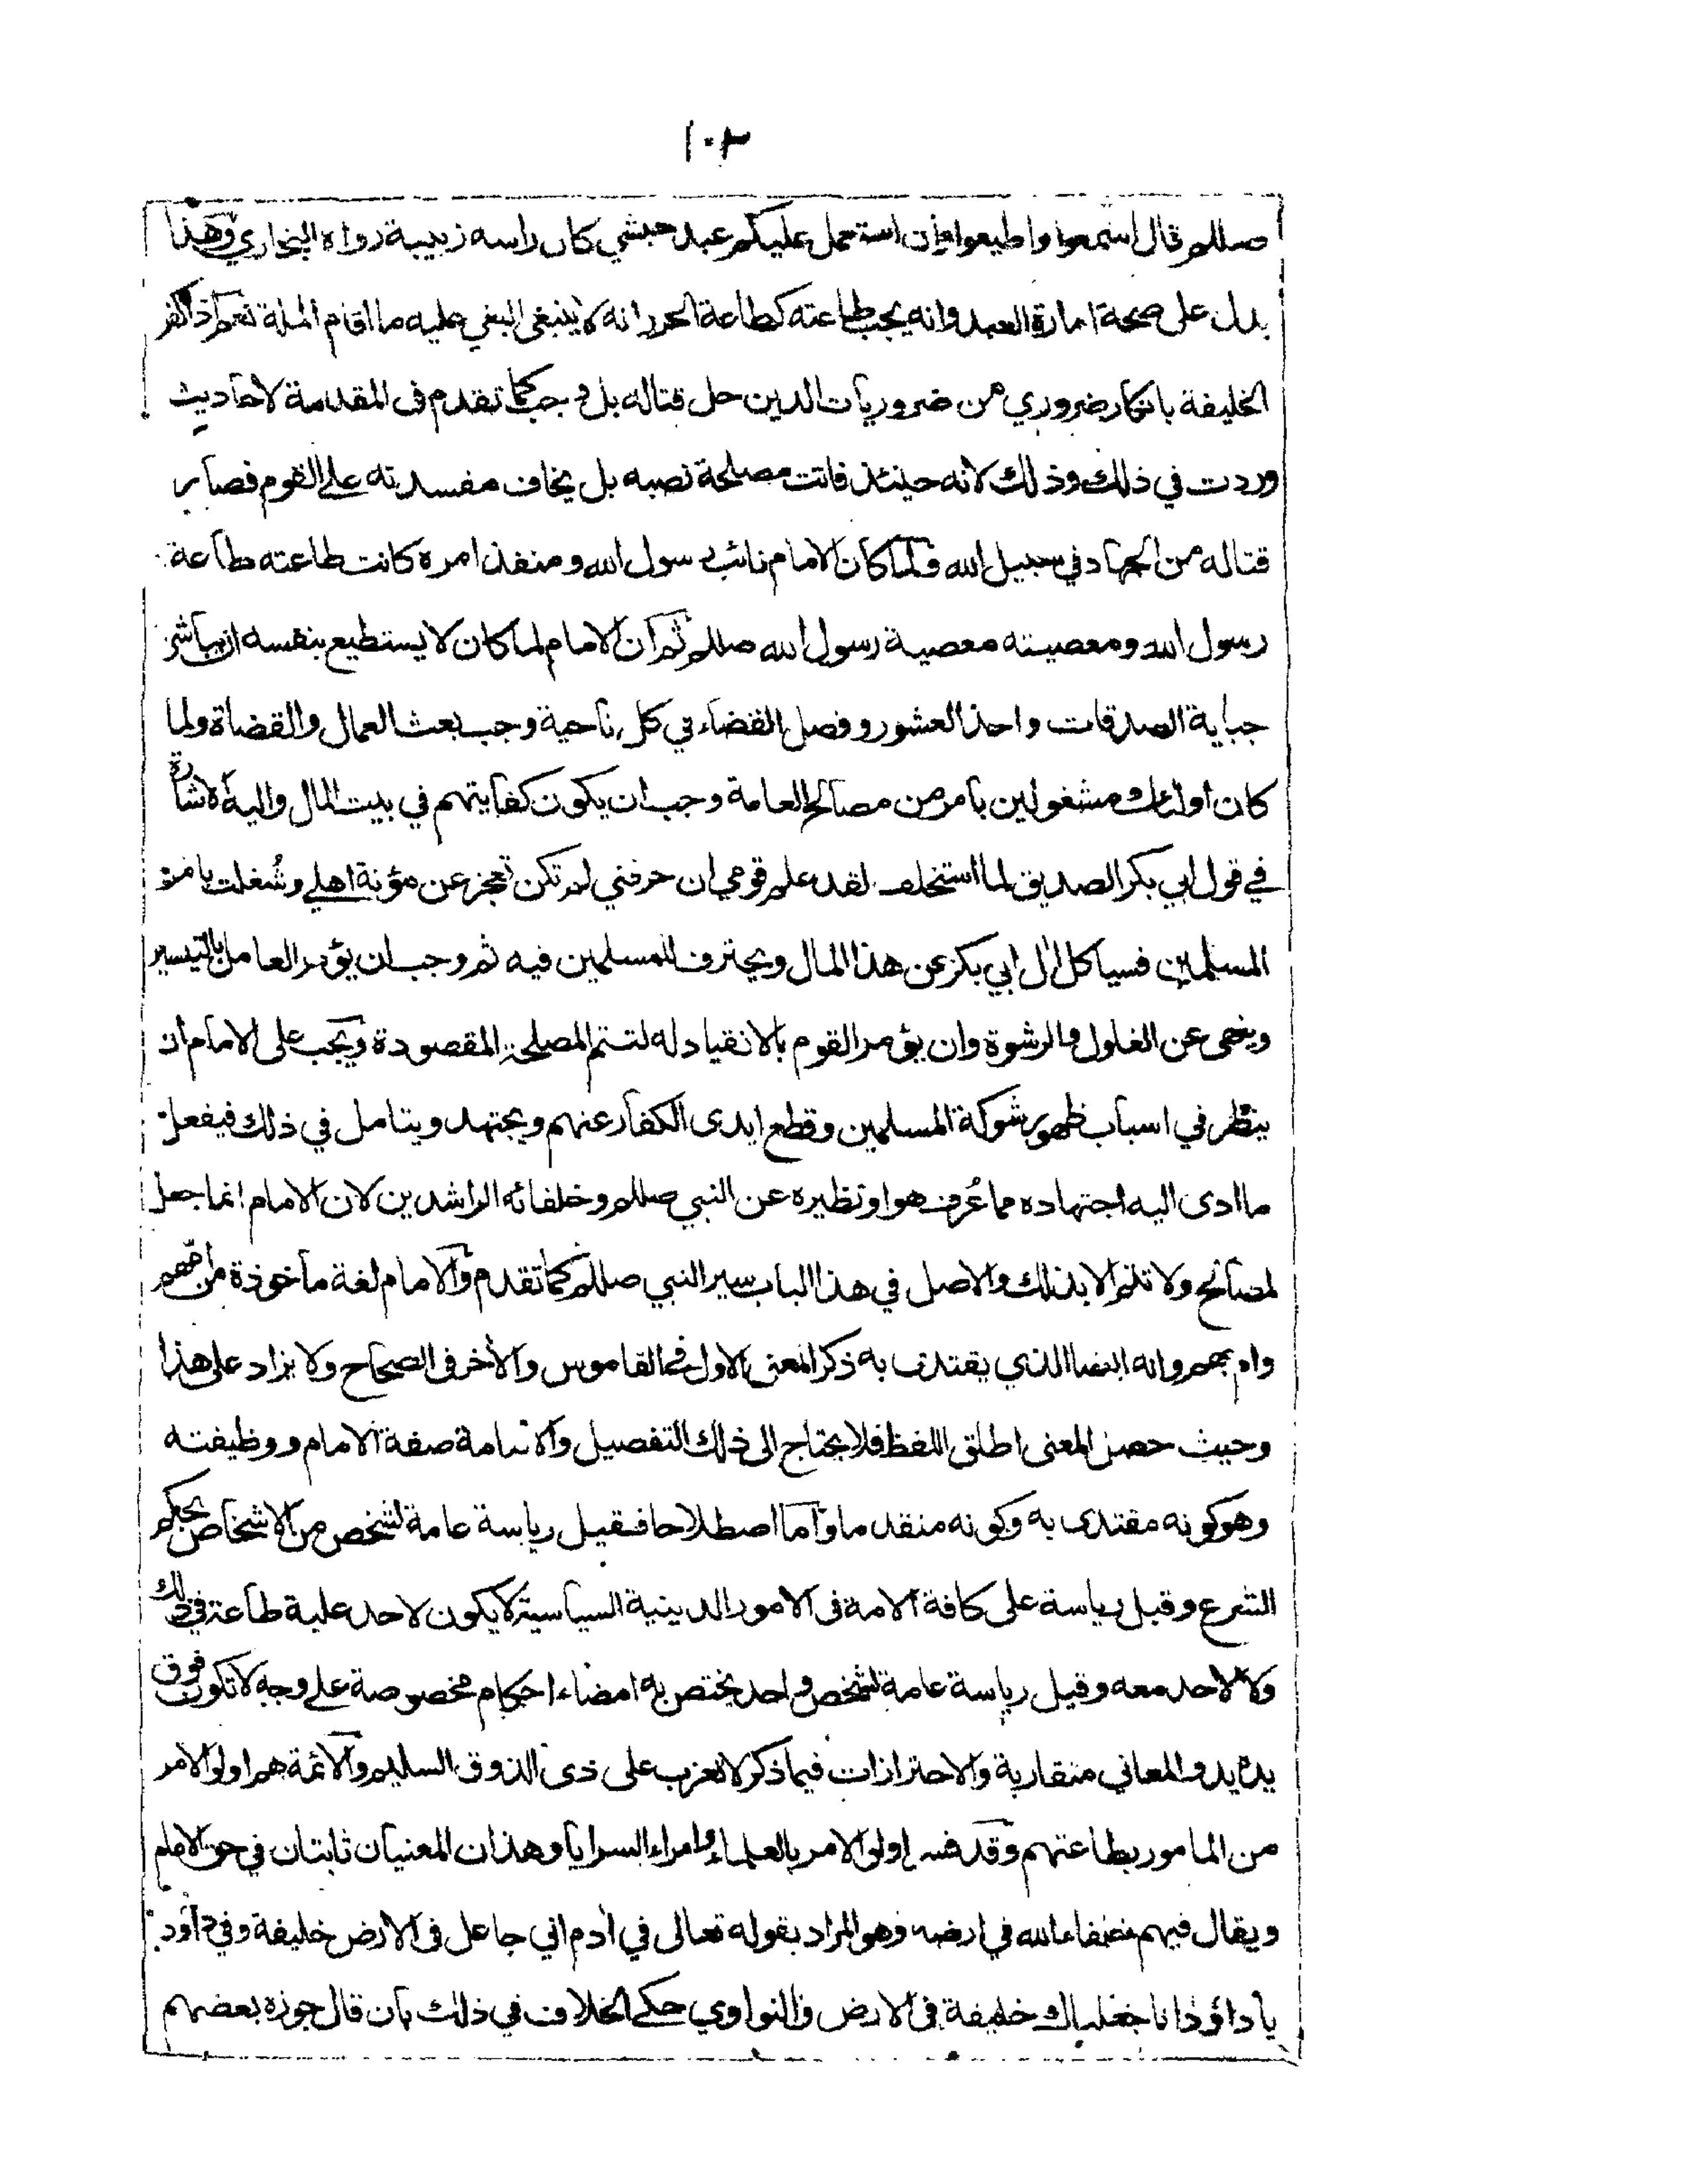 ١٠٢
صللم قال اسمعوا واطيعوا وان استعمل عليكم عبد حبشي كان راسه زبيبة رواه البخاري وهذا
يدل على صحة امارة العبد وانه يجب طاعته كطاعة الحر وانه لا ينبغي البغي عليه ما اقام الملة نعم اذا كفر
الخليفة بانكار ضروري من ضروريات الدين حل قتاله بل وجب كما تقدم فى المقدمة لاحاديث
وردت في ذلك وذلك لانه حينئذ فاتت مصلحة نصبه بل يخاف مفسدته على القوم فصار
قتاله من الجهاد في سبيل الله ولما كان الامام نائب رسول الله ومنفذ امره كانت طاعته طاعة
رسول الله ومعصيته معصية رسول الله صللم ثم ان الامام لما كان لا يستطيع بنفسه ان يباشر
جباية الصدقات واخذ العشور وفصل القضاء في كل ناحية وجب بعث العمال والقضاة ولما
كان اولئك مشغولين بامر من مصالح العامة وجب ان يكون كفايتهم في بيت المال واليه الاشارة
في قول ابي بكر الصديق لما استخلف لقد علم قومي ان حرفتي لم تكن تعجز عن مؤنة اهلي وشُغلت بامر
المسلمين فسياكل اٰل ابي بكر عن هذا المال ويحترف للمسلمين فيه ثم وجب ان يؤمر العامل بالتيسير
وينهى عن الغلول والرشوة وان يؤمر القوم بالانقياد له لتتم المصلحة المقصودة ويجب على الامام ان
ينظر في اسباب ظهور شوكة المسلمين وقطع ايدى الكفار عنهم ويجتهد ويتامل في ذلك فيفعل
ما ادى اليه اجتهاده مما عُرف هو او نظيره عن النبي صللم وخلفائه الراشدين لان الامام انما جعل
لمصالح ولا تتم الا بذلك والاصل في هذا الباب سير النبي صللم كما تقدم والامام لغة ماخوذة من امّهم
وام بهم وانه ايضا الذي يقتدى به ذكر المعنى الاول في القاموس والاٰخر فى الصحاح ولا يزاد على هذا
وحيث حصل المعنى اطلق اللفظ فلا يحتاج الى ذلك التفصيل والامامة صفة الامام ووظيفته
وهو كونه مقتدى به وكونه متقدما واما اصطلاحا فقيل رياسة عامة لشخص من الاشخاص بحكم
الشرع وقيل رياسة على كافة الامة فى الامور الدينية السياسية لا يكون لاحد عليه طاعة في ذلك
ولا لاحد معه وقيل رياسة عامة لشخص واحد يختص به امضاء احكام مخصوصة على وجه لا تكون فوق
يده يد والمعاني متقاربة والاحترازات فيما ذكر لا تعزب على ذى الذوق السليم والائمة هم اولو الامر
من المامور بطاعتهم وقد فسر اولو الامر بالعلماء وامراء السرايا وهذان المعنيان ثابتان في حق الامام
ويقال فيهم خلفاء الله في ارضه وهو المراد بقوله تعالى في اٰدم اني جاعل فى الارض خليفة وفي داود
يا داؤد انا جعلناك خليفة فى الارض والنواوي حكى الخلاف في ذلك بان قال جوزه بعضهم